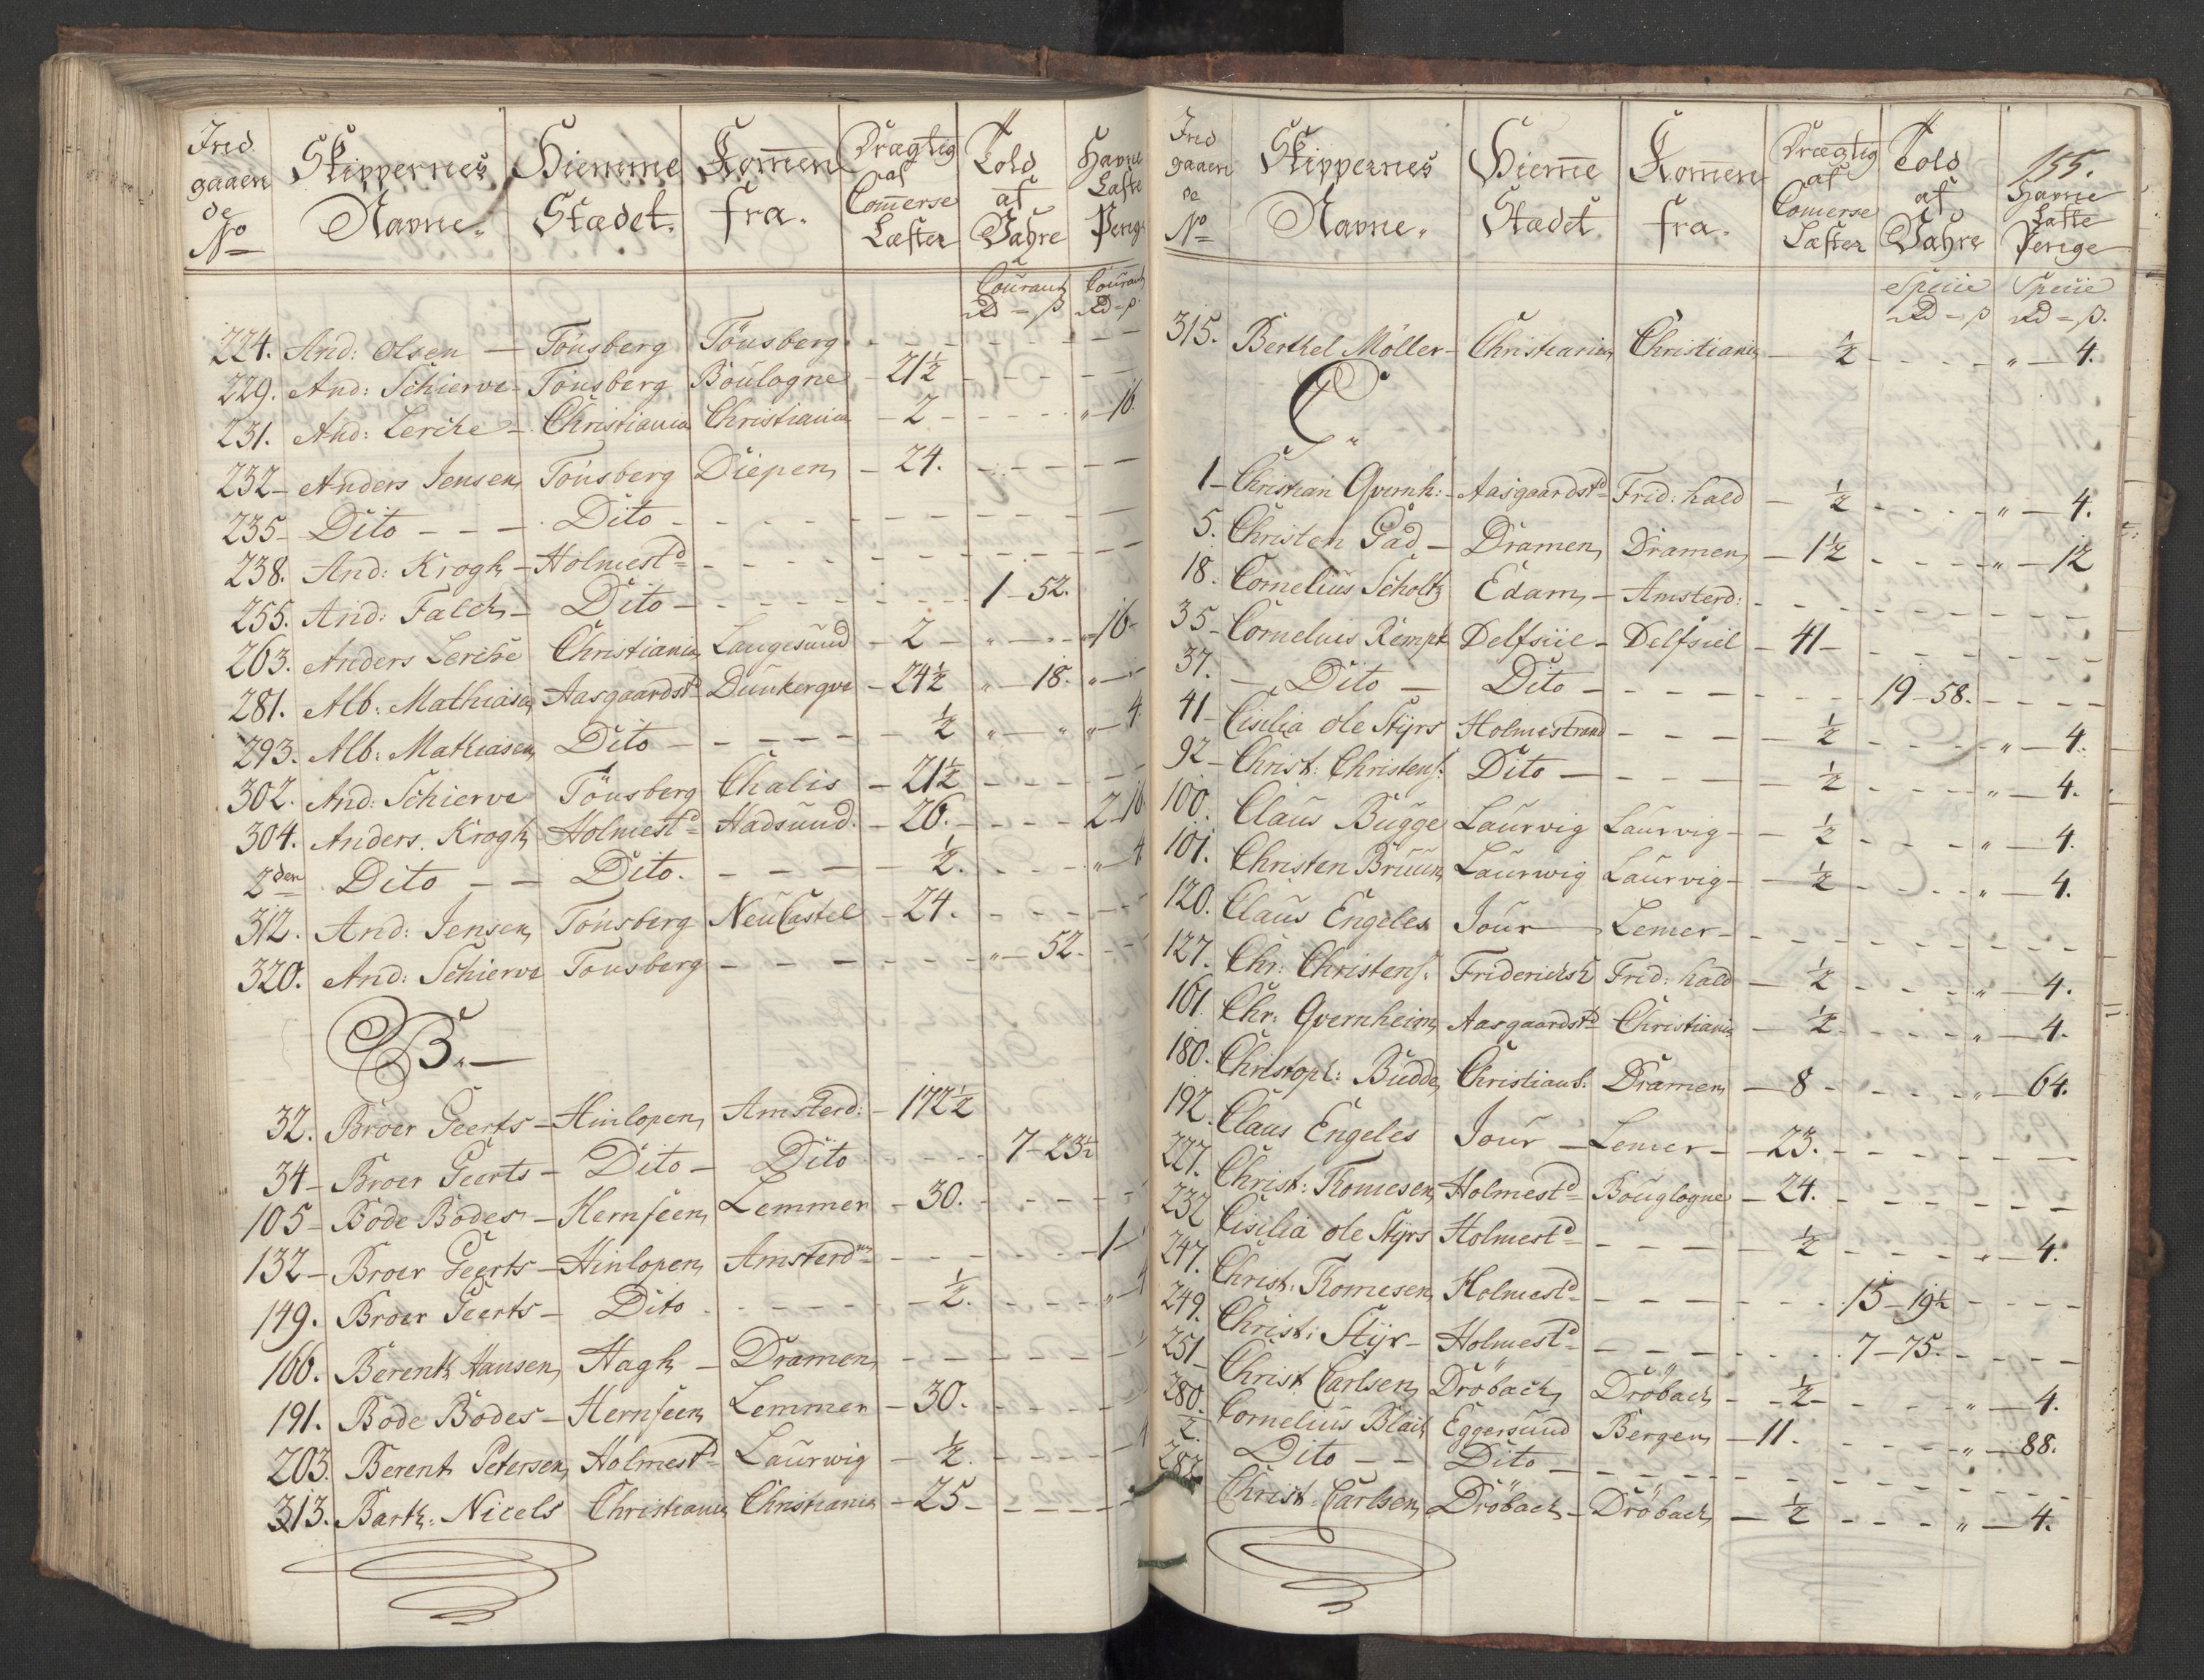 Ind gaaen de No | Skippernes Navne. | Hiemme Stædet. | Komen fra. | Drægtig af Comerse Læster | Told af Vahre | Havne Laste Penge
Courant Rd - ß | Courant Rd - ß
224. And: Olsen — Tönsberg Tönsberg - - - -
229. And: Schierve - Tönsberg Boulogne - 21½ - - - -
231. And: Lerche - Christiania Christiania - 2 - - - - " - 16.
232 - Anders Jensen Tönsberg Diepen - 24. - - - -
235 - Dito - - - Dito - - - -
238. And: Krogh - Holmestd - - - -
255. And: Falch - Dito - - - - 1 - 52.
263. Anders Lerche Christiania Langesund - 2 - " - " - " - 16 -
281. Alb: Mathiasen Aasgaardstd Dunkerqve - 24½ " - 18. " - -
293. Alb: Mathiasen Dito - - - - ½ " - " " - 4.
302. And: Schierve Tönsberg Chalis - 21½ - - - -
304. Anders. Krogh Holmestd Hadsund. - 26. - - - - 2 - 16.
2den Dito - - Dito. - - - - ½. - - - " - 4
312. And: Jensen Tönsberg NeuCastel - 24. - - - -
320. And: Schierve Tonsberg - - - - " - 52. - -
B. —
32. Broer Geerts - Hinlopen Amsterd: - 172½
34 - Broer Geerts - Dito - Dito - - - - 7 - 23½
105 - Bode Bodes - Hernseen Lemmer - 30. - - - -
132 - Broer Geerts - Hinlopen Amsterdm - - - - 1 -
149. Broer Geerts - Dito - - - - ½. - - - " - 4
166. Berent Hansen Hagh - Dramen - - - -
191. Bode Bodes - Hernseen Lemmer - 30. - - - -
203. Berent Petersen Holmestd Laurwig - ½. - - - - 4
313. Barth: Nicels Christiania Christiania - 25 - - - -
155.
Ind gaaen de No | Skippernes Navne. | Hieme Stædet. | Komen fra. | Drægtig af Comerse Læster | Told af Vahre | Havne Laste Penge
Specie Rd - ß | Specie Rd - ß.
315. Berthel Möller - Christiania Christiania - ½ - - - - " - 4.
C "
1 - Christian Qvernh: - Aasgaardstd Frid: hald - ½ - - - - " - 4.
5. Christen Gad - Dramen Dramen - 1½ - - - - " - 12
18. Cornelius Scholtz Edam - Amsterd: - - - -
35 - Cornelius Kempe Delfsiil - Delfsiel - 41 - - - - -
37. - Dito - Dito - - - - 19 - 58. - - - -
41 - Cisilia ole Styrs Holmestrand - - - - ½ - - - - " - 4.
92 - Christ: Christens: Dito - - - - ½ - - - - " - 4.
100. Claus Bugge Laurvig Laurvig - - ½ - - - " - 4.
101. Christen Bruun Laurwig Laurvig - - ½ - - - - " - 4.
120. Claus Engeles Jour — Lemer - - - - -
127. Chr: Christens: Friderichsh Frid: hald - ½ - - - " - 4.
161. Chr: Qvernheim Aasgaardstd Christiania - ½ - - - - " - 4.
180. Christoph: Budde Christians: Dramen - 8 - - - - - " - 64.
192. Claus Engeles Jour - Lemer - - 23. - - - -
227. Christ: Thomesen Holmestd Bouglogne - 24. - - - -
232 Cisilia ole Styrs Holmestd - - - - ½ - - - - " - 4.
247. Christ: Thomesen Holmestd - - - - 15 - 19½ - - - -
249. Christ: Styr - Holmestd - - - - 7 - 75. - - - -
251 - Christ Carlsen Dröbach Dröbach - - ½ - - - - " - 4.
280. Cornelius Blaik Eggersund Bergen - 11. - - - - " - 88.
2. Dito - - Dito - - - -
282. Christ: Carlsen Dröbach - Dröbach - ½ - - - " - 4.